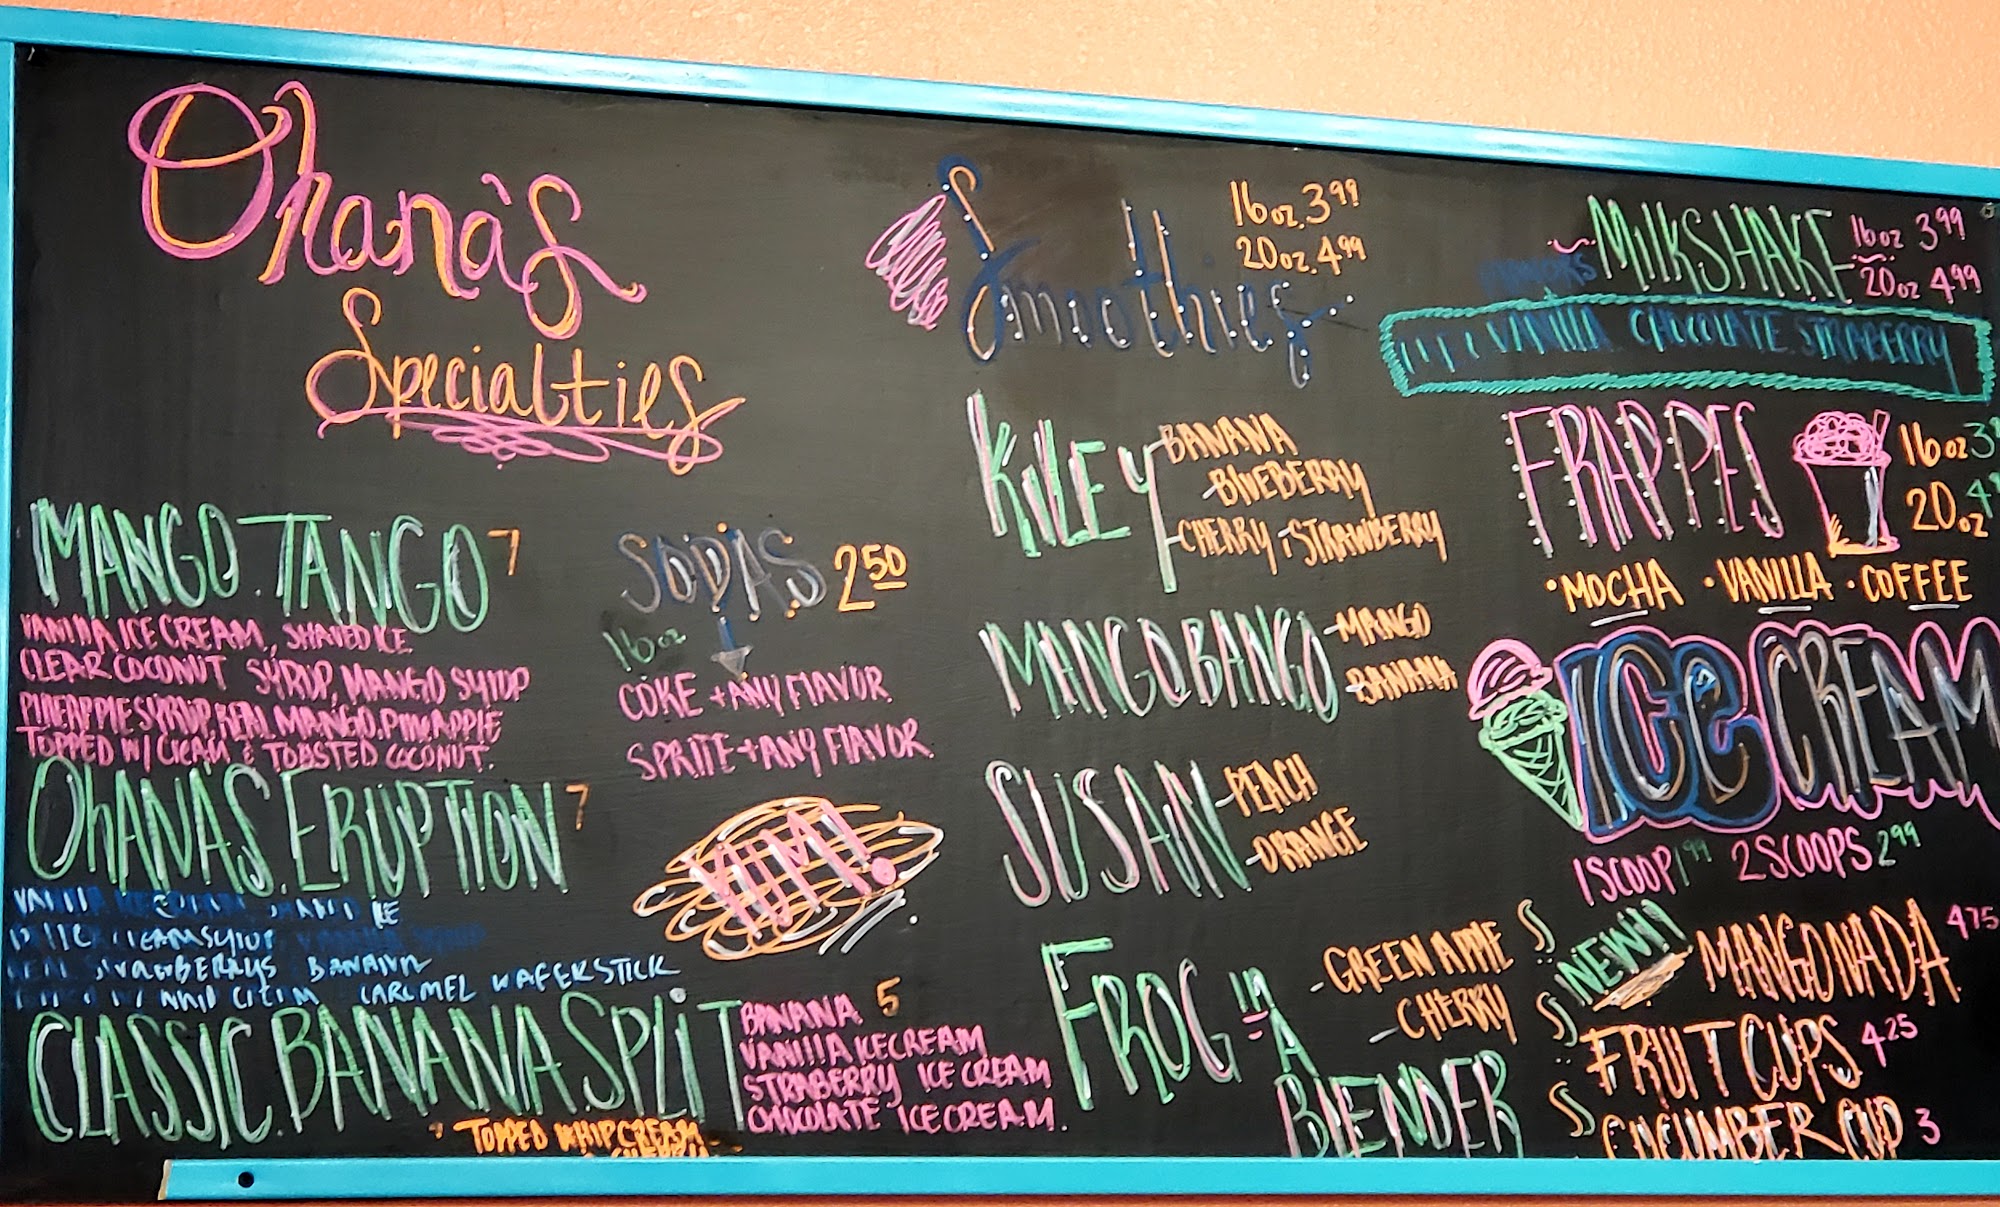 Ohana's
Specialties
MANGO.TANGO 7
VANILLA ICE CREAM, SHAVED ICE
CLEAR COCONUT SYRUP, MANGO SYRUP
PINEAPPLE SYRUP, REAL MANGO, PINEAPPLE
TOPPED W/ CREAM & TOASTED COCONUT.
OHANAS.ERUPTION 7
ICE
CREAM SYRUP
BANANA
CARAMEL WAFER STICK
CLASSIC.BANANA.SPLIT 5
BANANA
VANILLA ICECREAM
STRABERRY ICE CREAM
CHOCOLATE ICECREAM.
TOPPED WHIPCREAM
SODAS 2.50
16oz
COKE + ANY FLAVOR
SPRITE + ANY FLAVOR
YUM!
Smoothies
16oz. 3.99
20oz. 4.99
KILEY
BANANA
-BLUEBERRY
-CHERRY, STRAWBERRY
MANGO.BANGO
-MANGO
-BANANA
SUSAN
-PEACH
-ORANGE
FROG in A
BLENDER
-GREEN APPLE
-CHERRY
MilkSHAKE
16oz 3.99
20oz 4.99
VANILLA CHOCOLATE STRABERRY
FRAPPES
16oz
20oz
•MOCHA •VANILLA •COFFEE
ICe CREAM
1 SCOOP 1.99 2 SCOOPS 2.99
NEW!! MANGONADA 4.75
FRUIT CUPS 4.25
CUCUMBER CUP 3